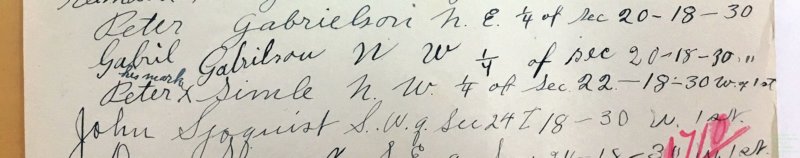 Peter Gabrielson N. E. 1/4 of sec 20-18-30
Gabril Gabrilson N W 1/4 of sec 20-18-30 "
his mark
Peter X Simle N. W. 1/4 of Sec. 22-18-30 W. of 1st
John Sjoquist S. W. q. Sec 24 T 18-30 W. 1st.
S E 18-30 W. 1st.